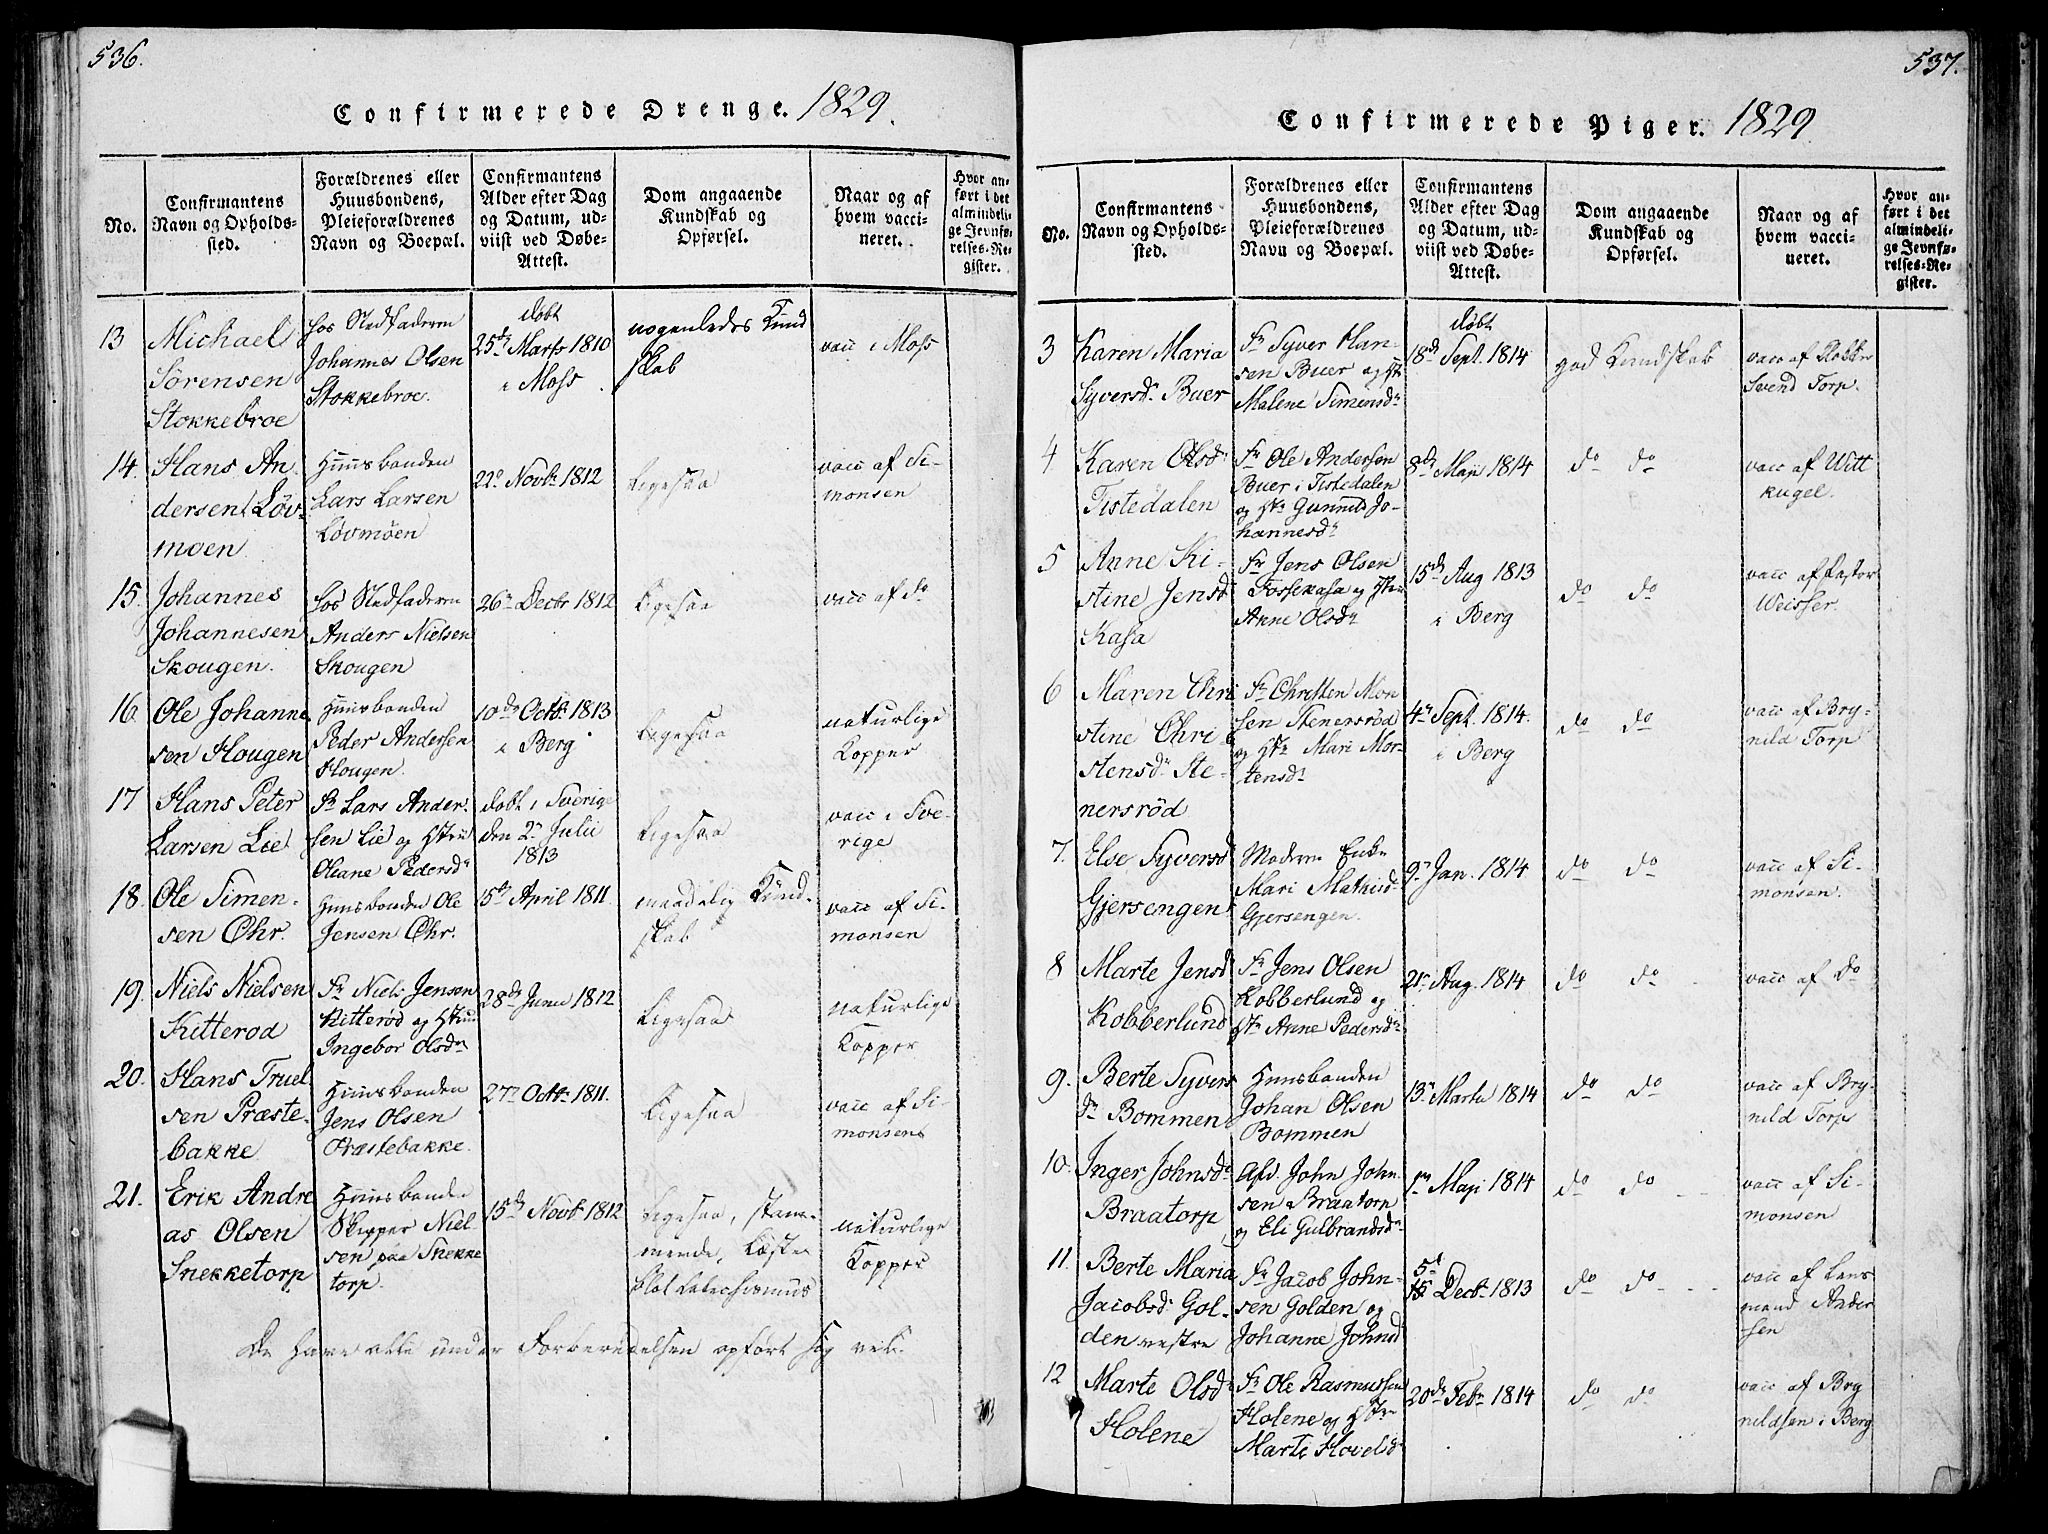 536.
Confirmerede Drenge. 1829.
No.
Confirmantens
Navn og Opholds-
sted.
Forældrenes eller
Huusbondens,
Pleieforældrenes
Navn og Boepæl.
Confirmantens
Alder efter Dag
og Datum, ud-
viist ved Døbe-
Attest.
Dom angaaende
Kundskab og
Opførsel.
Naar og af
hvem vacci-
neret.
Hvor an-
ført i det
almindeli-
ge Jevnfø-
relses-Re-
gister.
13
Michael
Sörensen
Stokkebroe
hos Stedfaderen
Johannes Olsen
Stokkebroe.
døbt
25de Marts 1810
i Moss
nogenledes Kund
skab
vacc i Moss
14.
Hans An-
dersen Löv-
moen
Huusbonden
Lars Larsen
Lövmöen
22de Novbr 1812
Ligesaa
vacc af Si-
monsen
15.
Johannes
Johannesen
Skougen.
hos Stedfaderen
Anders Nielsen
Skougen
26de Decbr 1812
Ligesaa
vacc af do
16.
Ole Johanne
sen Hougen
Huusbonden
Peder Andersen
Hougen.
10de Octbr 1813
i Berg
Ligesaa
naturlige
Kopper
17
Hans Peter
Larsen Lie
Fr Lars Ander-
sen Lie og Hstru
Oleane Pedersdr
døbt i Sverige
den 2den Julii
1813
Ligesaa
vacc i Sve-
rige
18.
Ole Simen-
sen Ohr.
Huusbonden Ole
Jensen Ohr.
15de April 1811.
maadelig Kund-
skab
vacc af Si-
monsen
19.
Niels Nielsen
Kitteröd
Fr Niels Jensen
Kitteröd og Hstru
Ingebor Olsdr
28de Junii 1812
Ligesaa
naturlige
Kopper
20.
Hans Truel
sen Præste-
bakke
Huusbonden
Jens Olsen
Præstebakke.
27de Octbr 1811.
Ligesaa
vacc af Si-
monsen
21.
Erik Andre
as Olsen
Snekketorp
Huusbonden
Skipper Niel
sen paa Snekke
torp.
15de Novbr 1812
Ligesaa, stam-
mende, læste
blot Catechismus
naturlige
Kopper
De have alle under Forberedelsen opført sig vel.
537.
Confirmerede Piger. 1829
No.
Confirmantens
Navn og Opholds-
sted.
Forældrenes eller
Huusbondens,
Pleieforældrenes
Navn og Boepæl.
Confirmantens
Alder efter Dag
og Datum, ud-
viist ved Døbe-
Attest.
Dom angaaende
Kundskab og
Opførsel.
Naar og af
hvem vacci-
neret.
Hvor an-
ført i det
almindeli-
ge Jevnfø-
relses-Re-
gister.
3
Karen Maria
Syversdr Buer
Fr Syver Han-
sen Buer og Hst
Malene Simensdr
døbt
18de Sept. 1814
god Kundskab
vacc af Klokker
Svend Torp.
4
Karen Olsdr
Tistedalen
Fr Ole Andersen
Buer i Tistedalen
og Hstr Gunnild Jo-
hannesdr
8de Maji 1814
do do
vacc af Witt
kugel.
5
Anne Ki-
stine Jensd
Kasa
Fr Jens Olsen
Fossekasa og Hstru
Anne Olsdr
15de Aug 1813
i Berg
do do
vacc af Pastor
Weisser.
6
Maren Chri
stine Chri
stensdr Ste-
nersröd
Fr Christen Mor
sen Stenersröd
og Hstr Mari Mor-
tensdr
4de Sept. 1814.
i Berg
do do
vacc af Bry-
nild Torp
7.
Else Syversd
Gjersengen
Moderen Enke
Mari Mathisd
Gjersengen.
9de Jan. 1814
do do
vacc af Si-
monsen.
8
Marte Jensd
Kobberlund
Fr Jens Olsen
Kobberlund og
Hstr Anne Pedersdr
21de Aug. 1814
do do
vacc af do
9.
Berte Syvers
dr Bommen
Huusbonden
Johan Olsen
Bommen
13de Martii 1814
do do
vacc af Bry-
nild Torp
10.
Inger Johnsdr
Braatorp
Afd. John John
sen Braatorp
og Eli Gulbrandsdr
1ste Maji 1814
do do
vacc af Si-
monsen
11.
Berte Maria
Jacobsdr Gol-
den vestre
Fr Jacob John-
sen Golden og
Johanne Johnsd
5d
Decbr 1813
do do
vacc af Lens
mand Ander
sen
12
Marte Olsdr
Holene
Fr Ole Rasmussen
Holene og Hstr
Marte Hovelsdr
20de Febr 1814
do do
vacc af Bry
nildsen i Berg